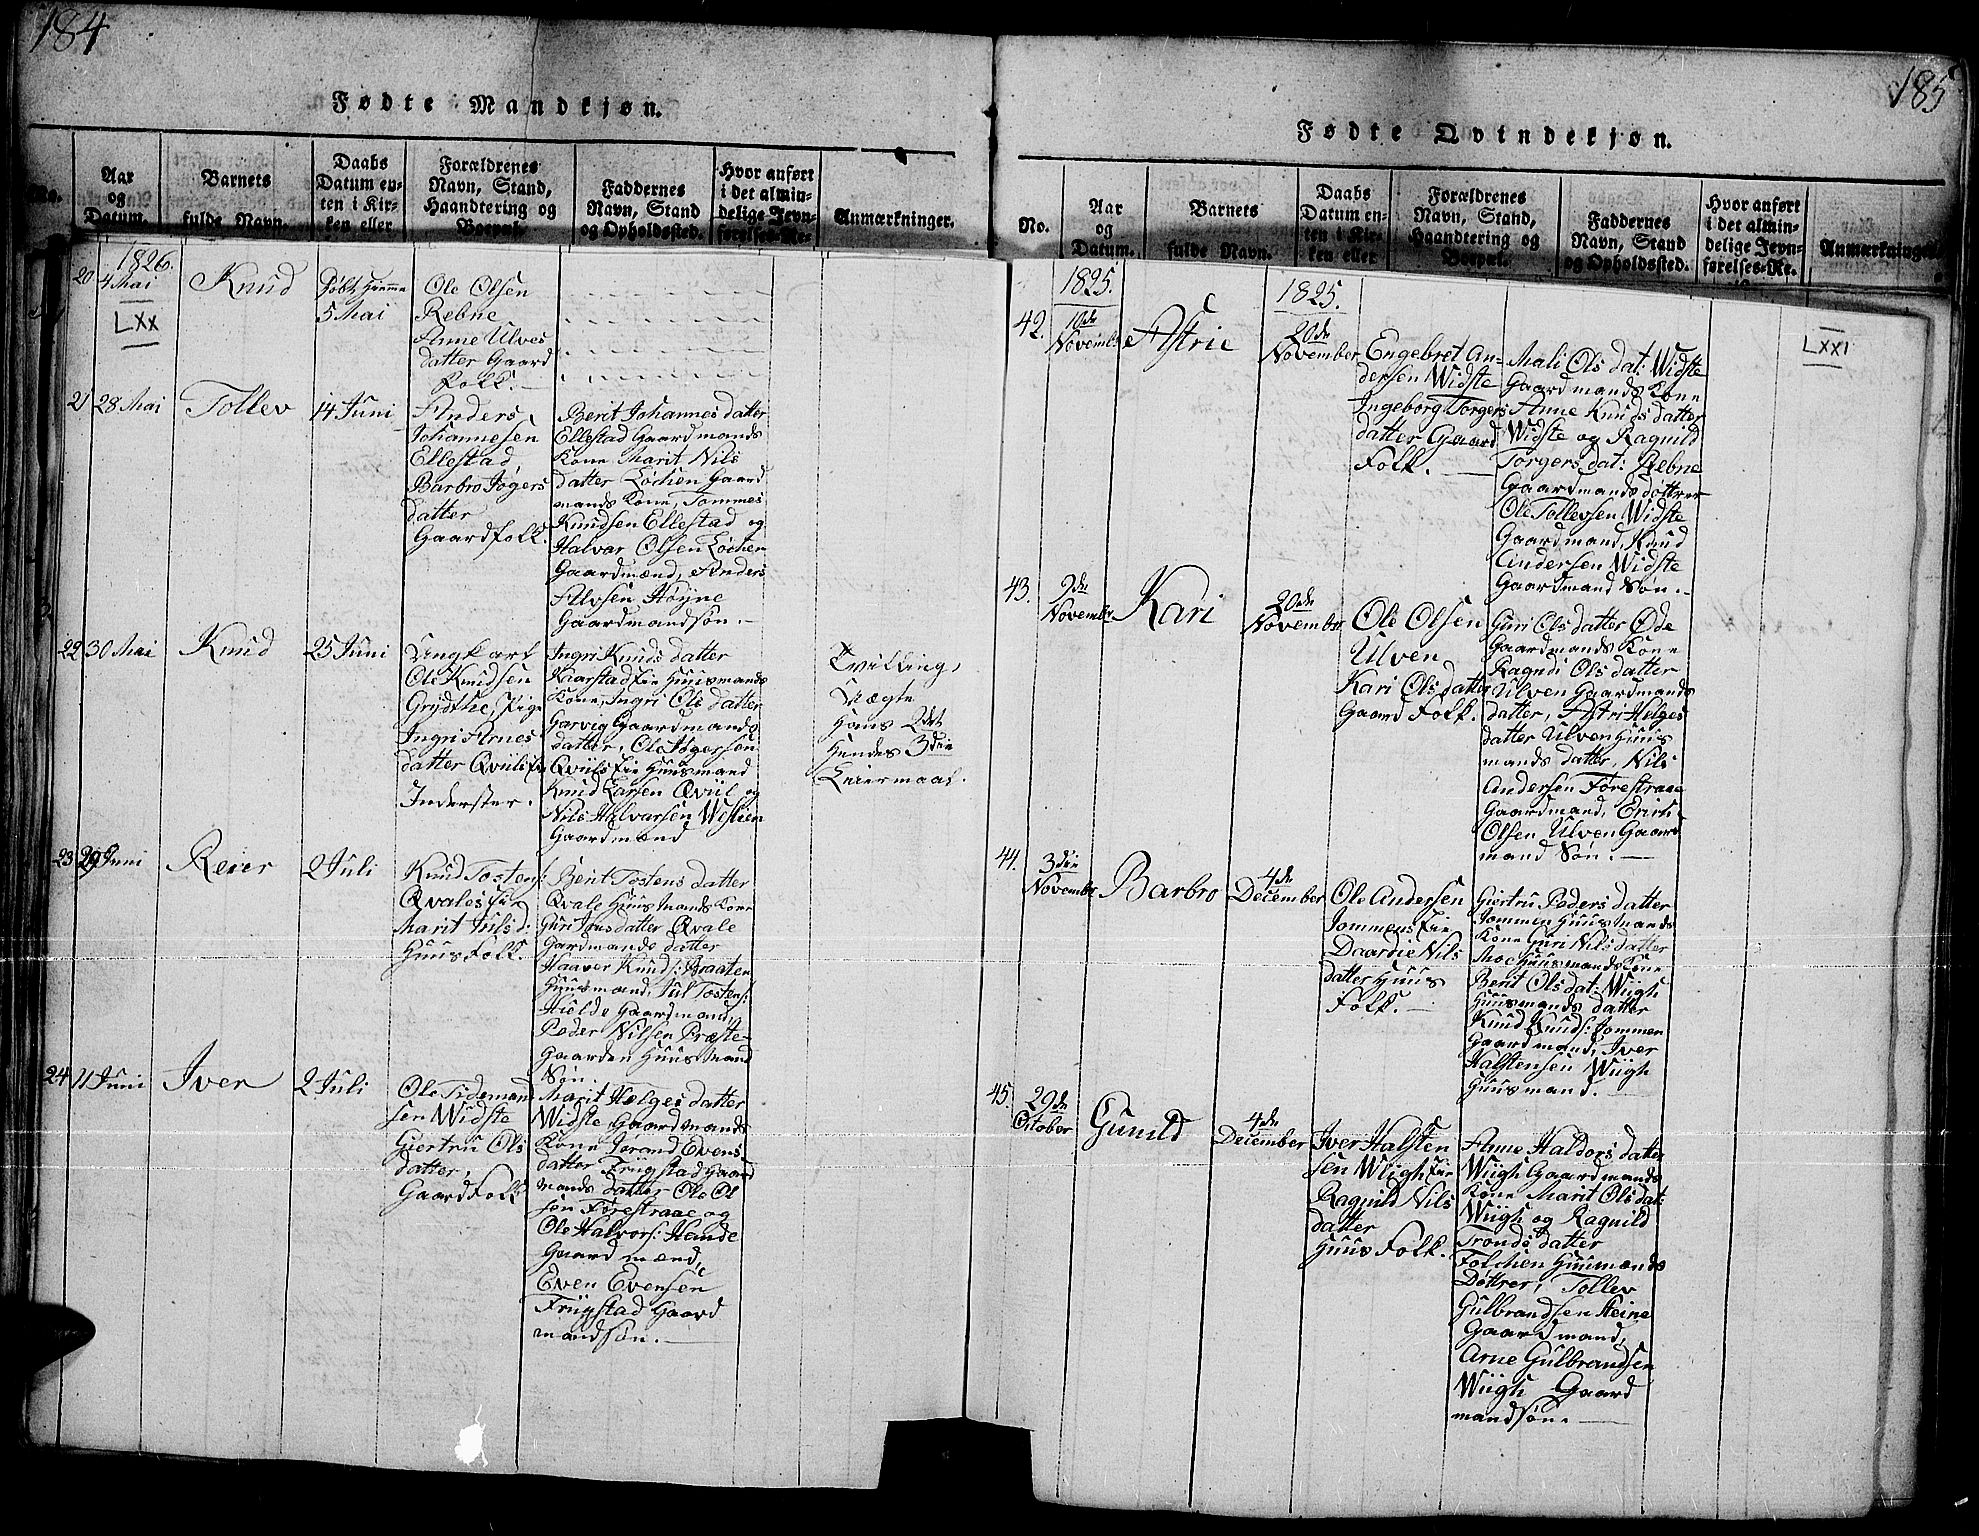 184
Fødte Mandkjøn.
No.
Aar
og
Datum.
Barnets
fulde Navn.
Daabs
Datum en-
ten i Kir-
ken eller
Forældrenes
Navn, Stand,
Haandtering og
Boepæl.
Faddernes
Navn, Stand
og Opholdssted.
Hvor anført
i det almin-
delige Jevn-
førelses-Re-
Anmærkninger.
1826.
20
4 Mai
LXX
Knud
døbt Hiemme
5 Mai
Ole Olsen
Rebne
Anne Ulves
datter Gaard
Folk.
21
28 Mai
Tollev
14 Juni
Anders
Johannesen
Ellestad
Barbro Jøgers
datter
Gaardfolk.
Berit Johannes datter
Ellestad Gaardmands
Kone Marit Nils
datter Løchen Gaard
mands Kone, Tommes
Knudsen Ellestad og
Halvar Olsen Løchen
Gaardmænd, Anders
Alvsen Høyne
Gaardmandsøn.
22
30 Mai
Knud
25 Juni
Ungkarl
Ole Knudsen
Grydthe, Pige
Ingri Arnes
datter Qviilsfie
Inderster.
Ingri Knuds datter
Kaarstad Eie Huusmands
Kone, Ingri Ols datter
Garvig Gaardmands
datter, Ole Jøgersen
Qviils Eie Huusmand
Knud Larsen Qviil og
Nils Halvarsen Westien
Gaardmænd
Tvilling,
Uægte
Hans 2det
Hendes 3die
Leiermaal.
23
29 Juni
Reier
2 Juli
Knud Tostens:
Qvales Eie
Marit Juls d:
Huus Folk.
Berit Tostens datter
Qvale Huusmands Kone
Guri Jens datter Qvale
Gardmands datter
Haaver Knuds: Braaten
Huusmand, Jul Tostens:
Hielde Gaardmand,
Peder Nilsen Præste-
Gaarden Huusmand
Søn.
24
11 Juni
Iver
2 Juli
Ole Tideman
sen Widste
Giertru Ols
datter,
Gaard Folk
Marit Helges datter
Widste Gaardmands
Kone Jørand Evens
datter Frugstad Gaard
mands datter Ole Ol
sen Forestraae og
Ole Halvors: Hande
Gaard mænd,
Even Evensen
Frügstad Gaard
mandsøn.
185
Fødte Qvindekjøn.
No.
Aar
og
Datum.
Barnets
fulde Navn.
Daabs
Datum en-
ten i Kir-
ken eller
Forældrenes
Navn, Stand,
Haandtering og
Boepæl.
Faddernes
Navn, Stand
og Opholdssted.
Hvor anført
i det almin-
delige Jevn-
førelses-Re.
Anmærkninger.
1825.
1825.
42.
10de
November
Astrie
20de
November
Engebret An-
dersen Widste
Ingeborg Torgers
datter Gaard
Folk.
Mali Ols dat: Widste
Gaardmands Kone
Anne Knuds datter
Widste og Ragnild
Torgers dat: Rebne
Gaardmands døttrer
Ole Tollevsen Widste
Gaardmand, Knud
Andersen Widste
Gaardmand Søn.
LXXI
43.
9de
November
Kari
20de
November
Ole Olsen
Ulven
Kari Ols datter
Gaard Folk.
Guri Ols datter Øde
Gaardmands Kone
Ragndi Ols datter
Ulven Gaardmands
datter, Astri Helges
datter Ulven Huus
mands datter, Nils
Andersen Forestraae
Gaardmand, Erich
Olsen Ulven Gaard
mand Søn.
44.
3die
November
Barbro
4de
December
Ole Andersen
Jommens Eie
Daardie Nils
datter Huus
Folk.
Giertru Peders datter
Jommen Huusmands
Kone Guri Nils datter
Moe Huusmands Kone
Berit Ols dat: Wiigh
Huusmands datter
Knud Knuds: Jommen
Gaardmand, Iver
Halstensen Wiigh
Huusmand.
45.
29de
October
Gunild
4de
December
Iver Halsten
sen Wiigh Eie
Ragnild Nils
datter
Huus Folk.
Anne Haldors datter
Wiigh Gaardmands
Kone Marit Ols dat:
Wiigh og Ragnild
Tronds datter
Folchen Huusmands
Døttrer, Tollev
Gulbrandsen Heine
Gaardmand,
Arne Gülbrandsen
Wiigh Gaard
mandsøn.